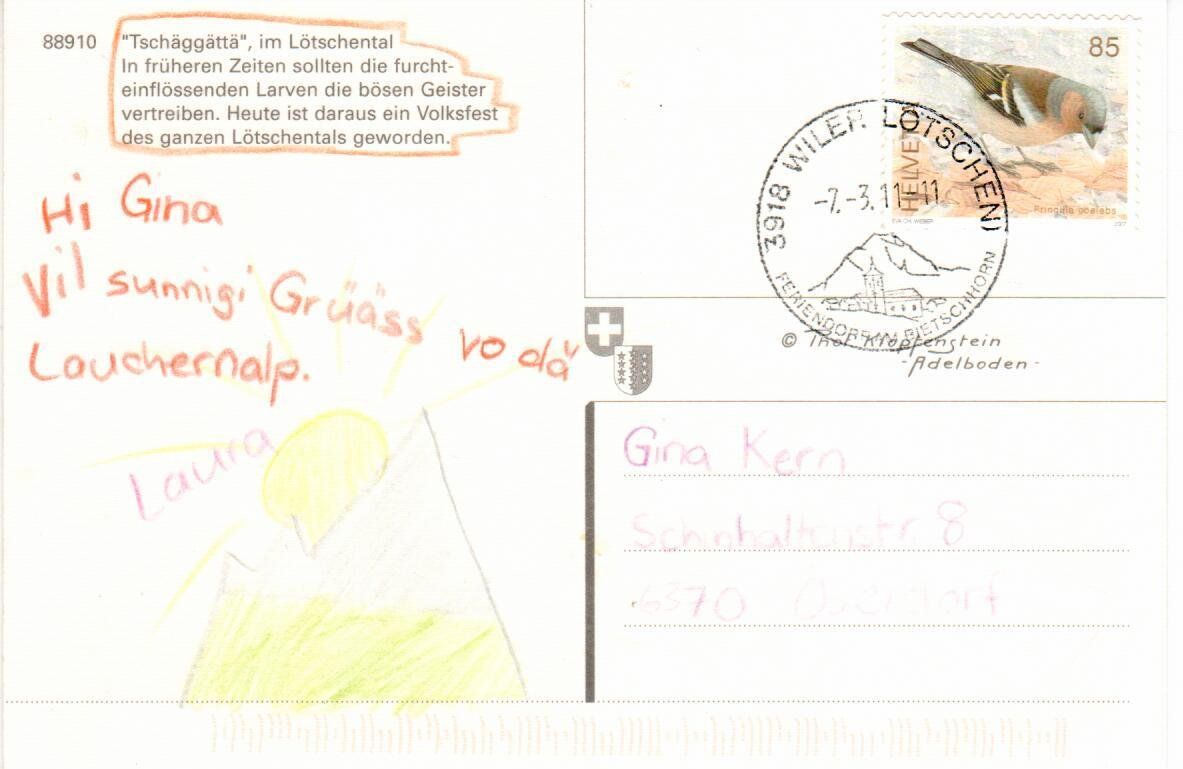 88910 "Tschäggättä", im Lötschental
In früheren Zeiten sollten die furcht-
einflössenden Larven die bösen Geister
vertreiben. Heute ist daraus ein Volksfest
des ganzen Lötschentals geworden.
Hi Gina
Vil sunnigi Grüäss vo dä
Lauchernalp.
Laura
85
HELVETIA
Fringilla coelebs
2007
3918 WILER (LÖTSCHEN)
-7.-3.11-11
FERIENDORF AM BIETSCHHORN
© Thor Klopfenstein
-Adelboden-
Gina Kern
Schinhaltenstr 8
6370 Oberdorf